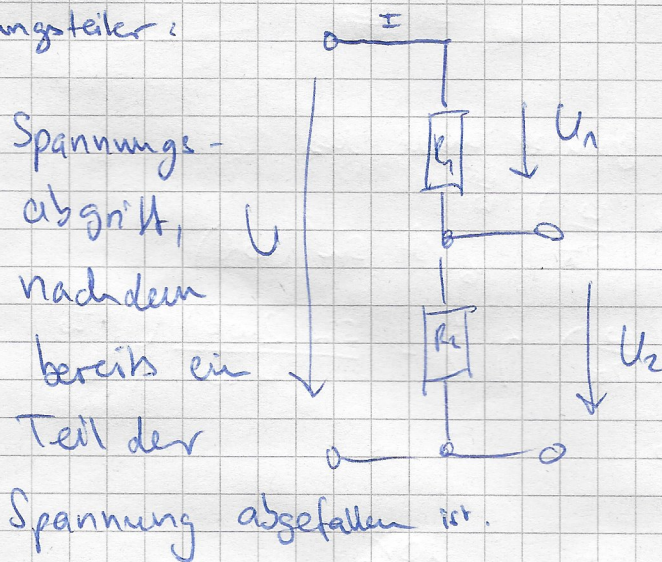 ungsteiler:
I
Spannungs-
abgriff,
nachdem
bereits ein
Teil der
Spannung abgefallen ist.
U
R1
U1
R2
U2